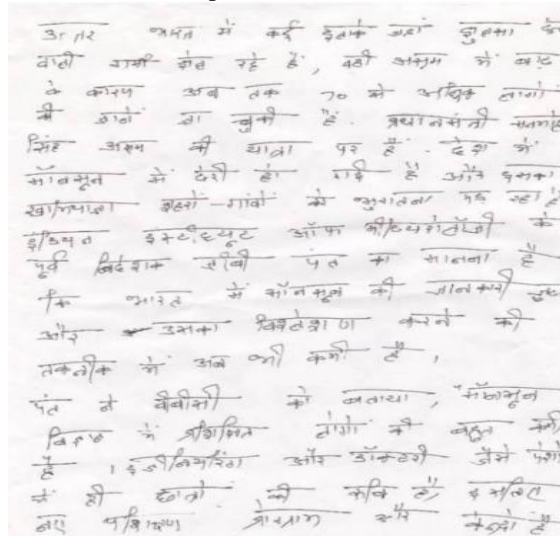 उत्तर भारत में कई इलाके जहां झुलसा दे
वाली गर्मी झेल रहे हैं, वहीं असम में बाढ़
के कारण अब तक 70 से अधिक लोगों
की जानें जा चुकी हैं. प्रधानमंत्री मनमो
सिंह असम की यात्रा पर हैं. देश में
मॉनसून में देरी हो गई है और इसका
खामियाजा शहरों-गांवों को भुगतना पड़ रहा है
इंडियन इंस्टीट्यूट ऑफ मीटियरोलॉजी के
पूर्व निदेशक जीबी पंत का मानना है
कि भारत में मॉनसून की जानकारी
और उसका विश्लेषण करने की
तकनीक में अब भी कमी है।
पंत ने बीबीसी को बताया, मॉनसून
विज्ञान में प्रशिक्षित लोगों की बहुत कमी
है। इंजीनियरिंग और डॉक्टरी जैसे पेशे
में ही छात्रों की रूचि है, इसलिए
नए प्रशिक्षण प्रोग्राम और केन्द्रों